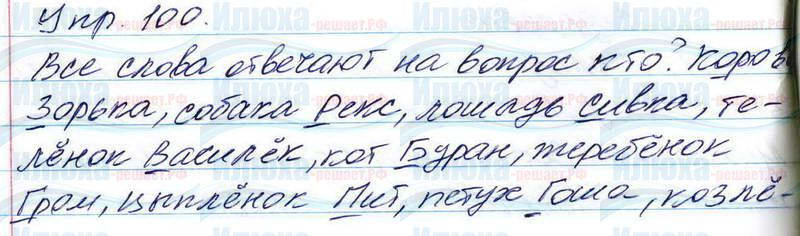 Упр. 100.
Все слова отвечают на вопрос кто? Корова
Зорька, собака Рекс, лошадь Сивка, те-
лёнок Василёк, кот Буран, жеребёнок
Гром, цыплёнок Пит, петух Гоша, козлё-